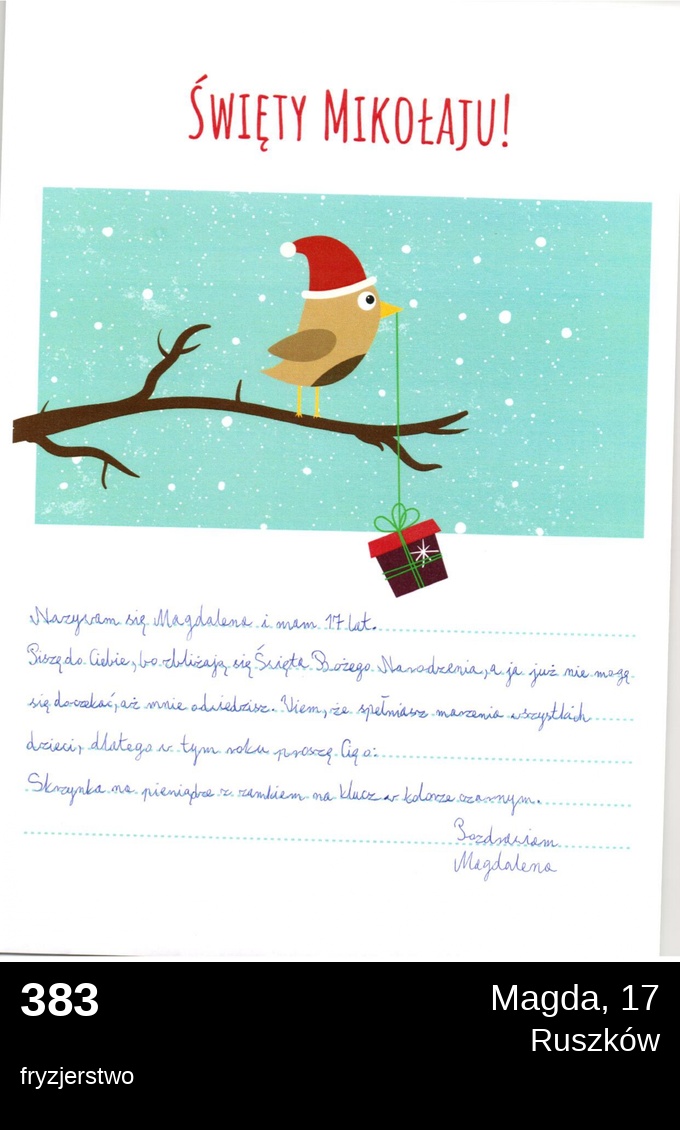 ŚWIĘTY MIKOŁAJU!
Nazywam się Magdalena i mam 17 lat.
Piszę do Ciebie, bo zbliżają się Święta Bożego Narodzenia, a ja już nie mogę
się doczekać, aż mnie odwiedzisz. Wiem, że spełniasz marzenia wszystkich
dzieci, dlatego w tym roku proszę Cię o:
Skrzynka na pieniądze z zamkiem na klucz w kolorze czarnym.
Pozdrawiam
Magdalena
383
Magda, 17
Ruszków
fryzjerstwo